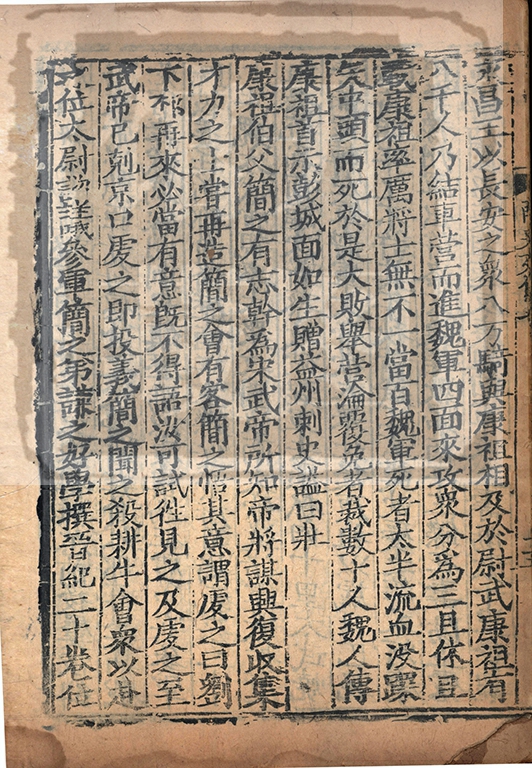 永昌王以長安之衆八万騎與康祖相及於尉武康祖有
八千人乃結車营而進魏軍四面來攻衆分為三且休且
戰康祖率厲將士無不一當百魏軍死者太半流血没踝
矢中頭而死於是大敗舉营淪覆免者裁數十人魏人傳
康祖首示彭城面如生贈益州刺史謚曰壯
康祖伯父簡之有志幹為宋武帝所知帝將謀興復收集
才力之士嘗再造簡之會有客簡之悟其意謂䖍之曰劉
下邳再來必當有意既不得語汝可試徃見之及䖍之至
武帝已剋京口䖍之即投義簡之聞之殺耕牛會衆以赴
位太尉諮議參軍簡之弟謙之好學撰晉紀二十卷位